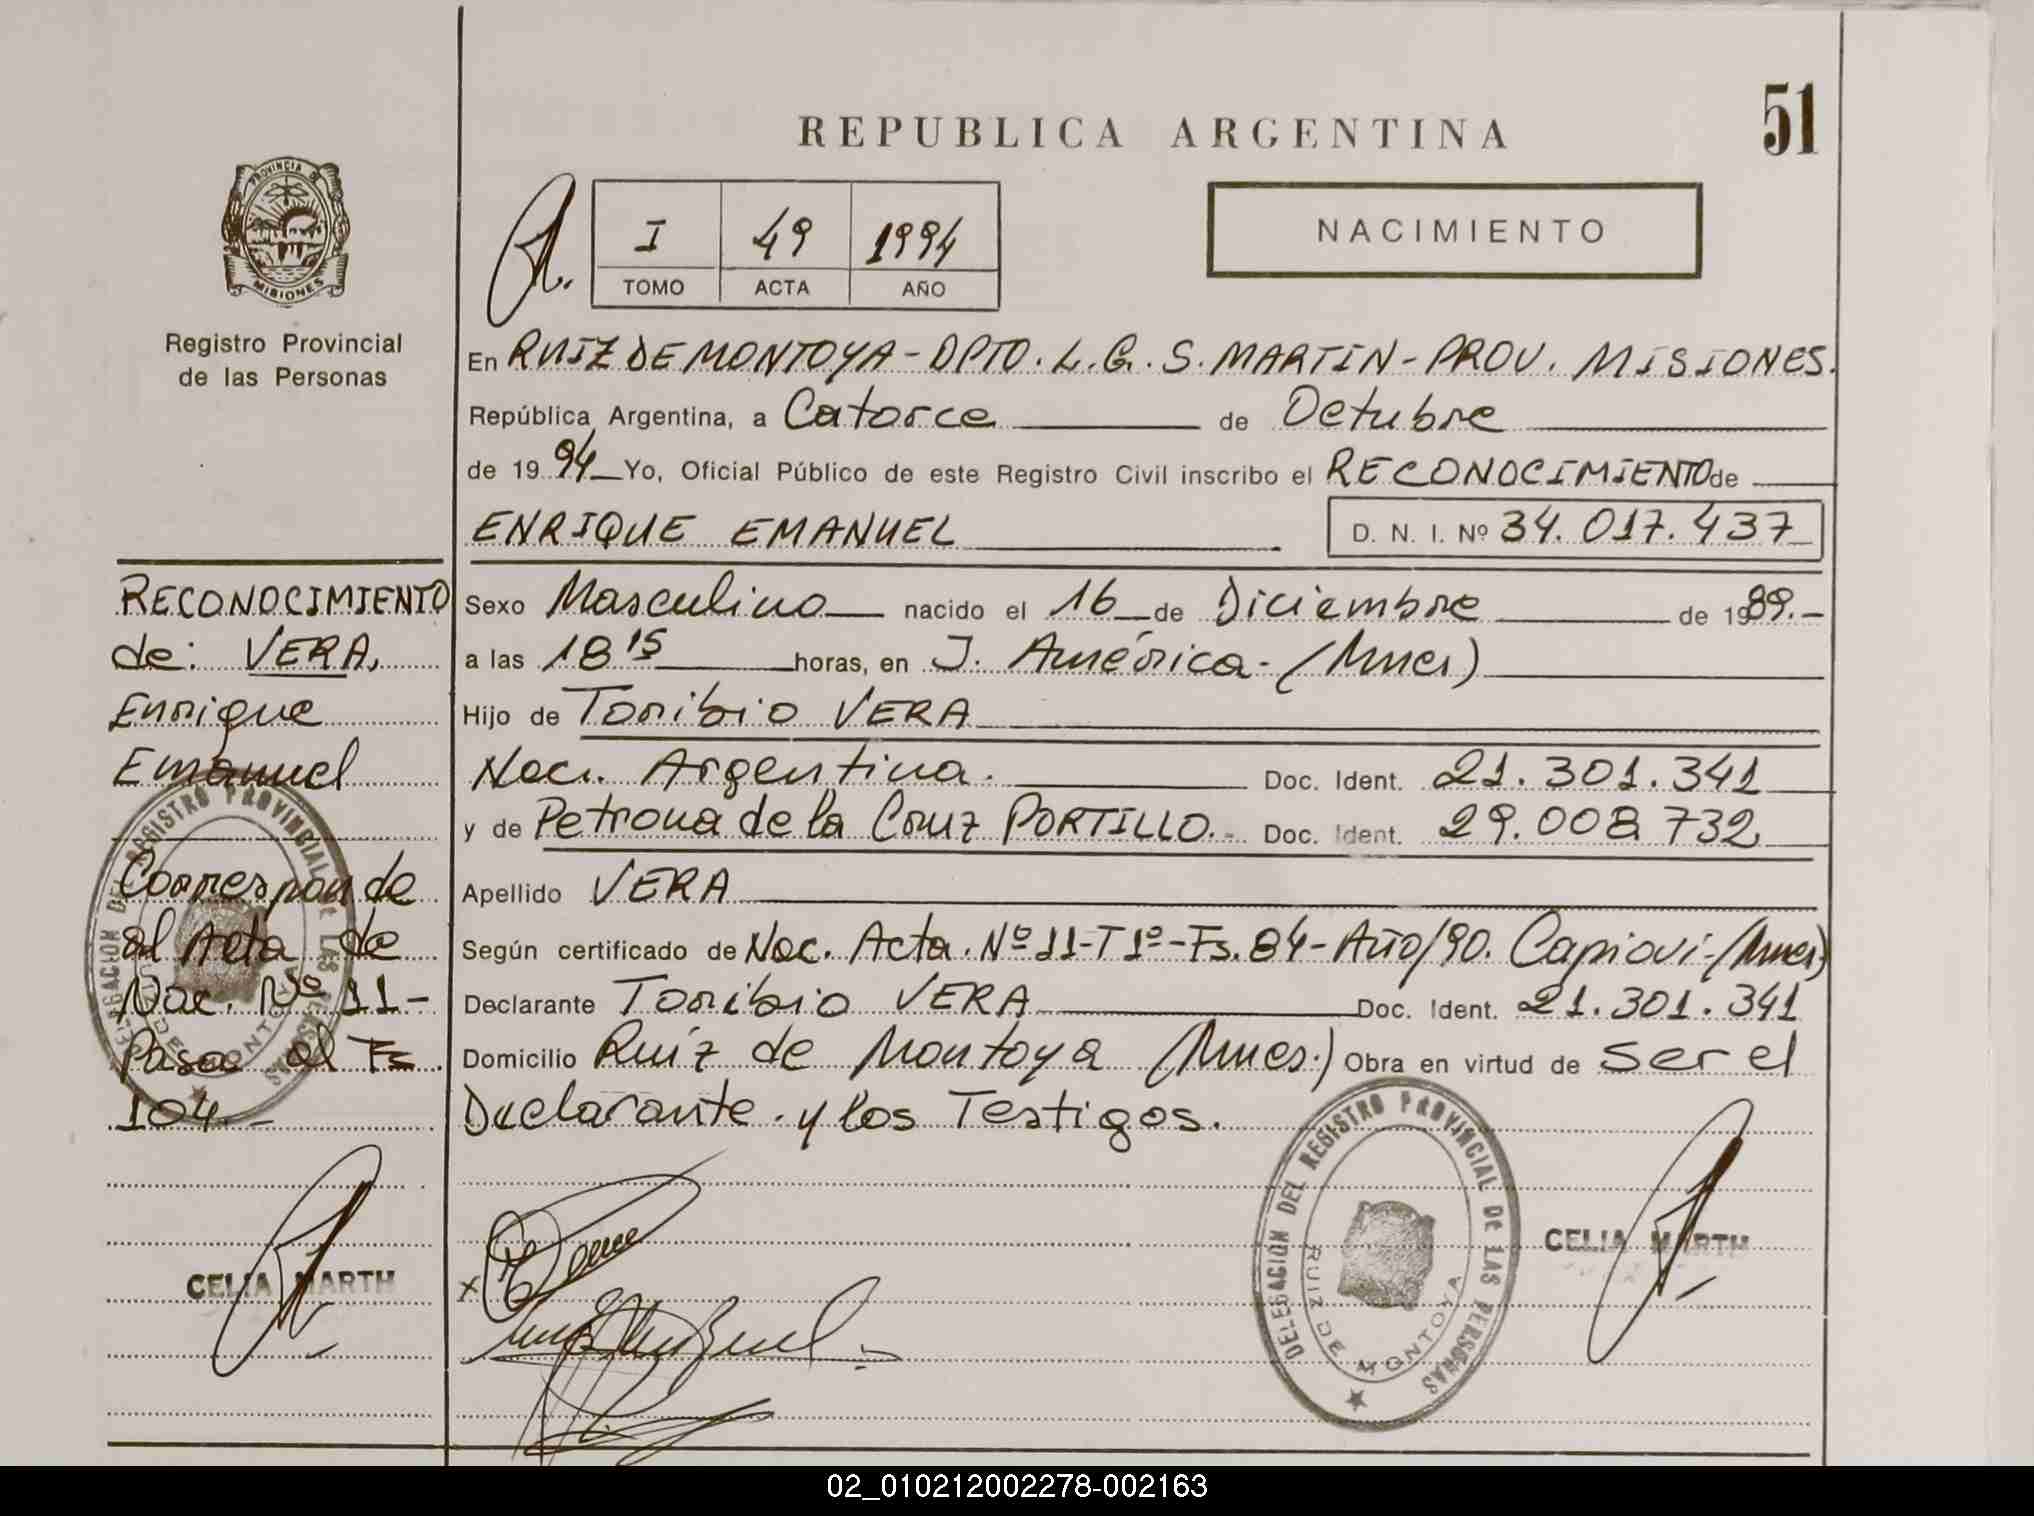 51
REPUBLICA ARGENTINA
PROVINCIA DE
MISIONES
Registro Provincial
de las Personas
I 49 1994
TOMO ACTA AÑO
NACIMIENTO
En RUIZ DE MONTOYA - DPTO. L. G. S. MARTIN - PROV. MISIONES.
República Argentina, a Catorce de Octubre
de 1994 Yo, Oficial Público de este Registro Civil inscribo el RECONOCIMIENTO de
ENRIQUE EMANUEL D. N. I. Nº 34.017.437
Sexo Masculino nacido el 16 de Diciembre de 1989.-
a las 18 15 horas, en J. América - (Mnes)
Hijo de Toribio VERA
Nac. Argentina. Doc. Ident. 21.301.341
y de Petrona de la Cruz PORTILLO.- Doc. Ident. 29.008.732
Apellido VERA
Según certificado de Nac. Acta. Nº 11-T 1º-Fs. 84-Año/90. Capiovi-(Mnes)
Declarante Toribio VERA Doc. Ident. 21.301.341
Domicilio Ruíz de Montoya (Mnes.) Obra en virtud de ser el
Declarante. y los Testigos.
RECONOCIMIENTO
de: VERA,
Enrique
Emanuel
Corresponde
al Acta de
Nac. Nº 11-
Pasa al Fs
104.-
DELEGACION DEL REGISTRO PROVINCIAL DE LAS PERSONAS
RUIZ DE MONTOYA
CELIA MARTH
DELEGACION DEL REGISTRO PROVINCIAL DE LAS PERSONAS
RUIZ DE MONTOYA
CELIA MARTH
02_010212002278-002163